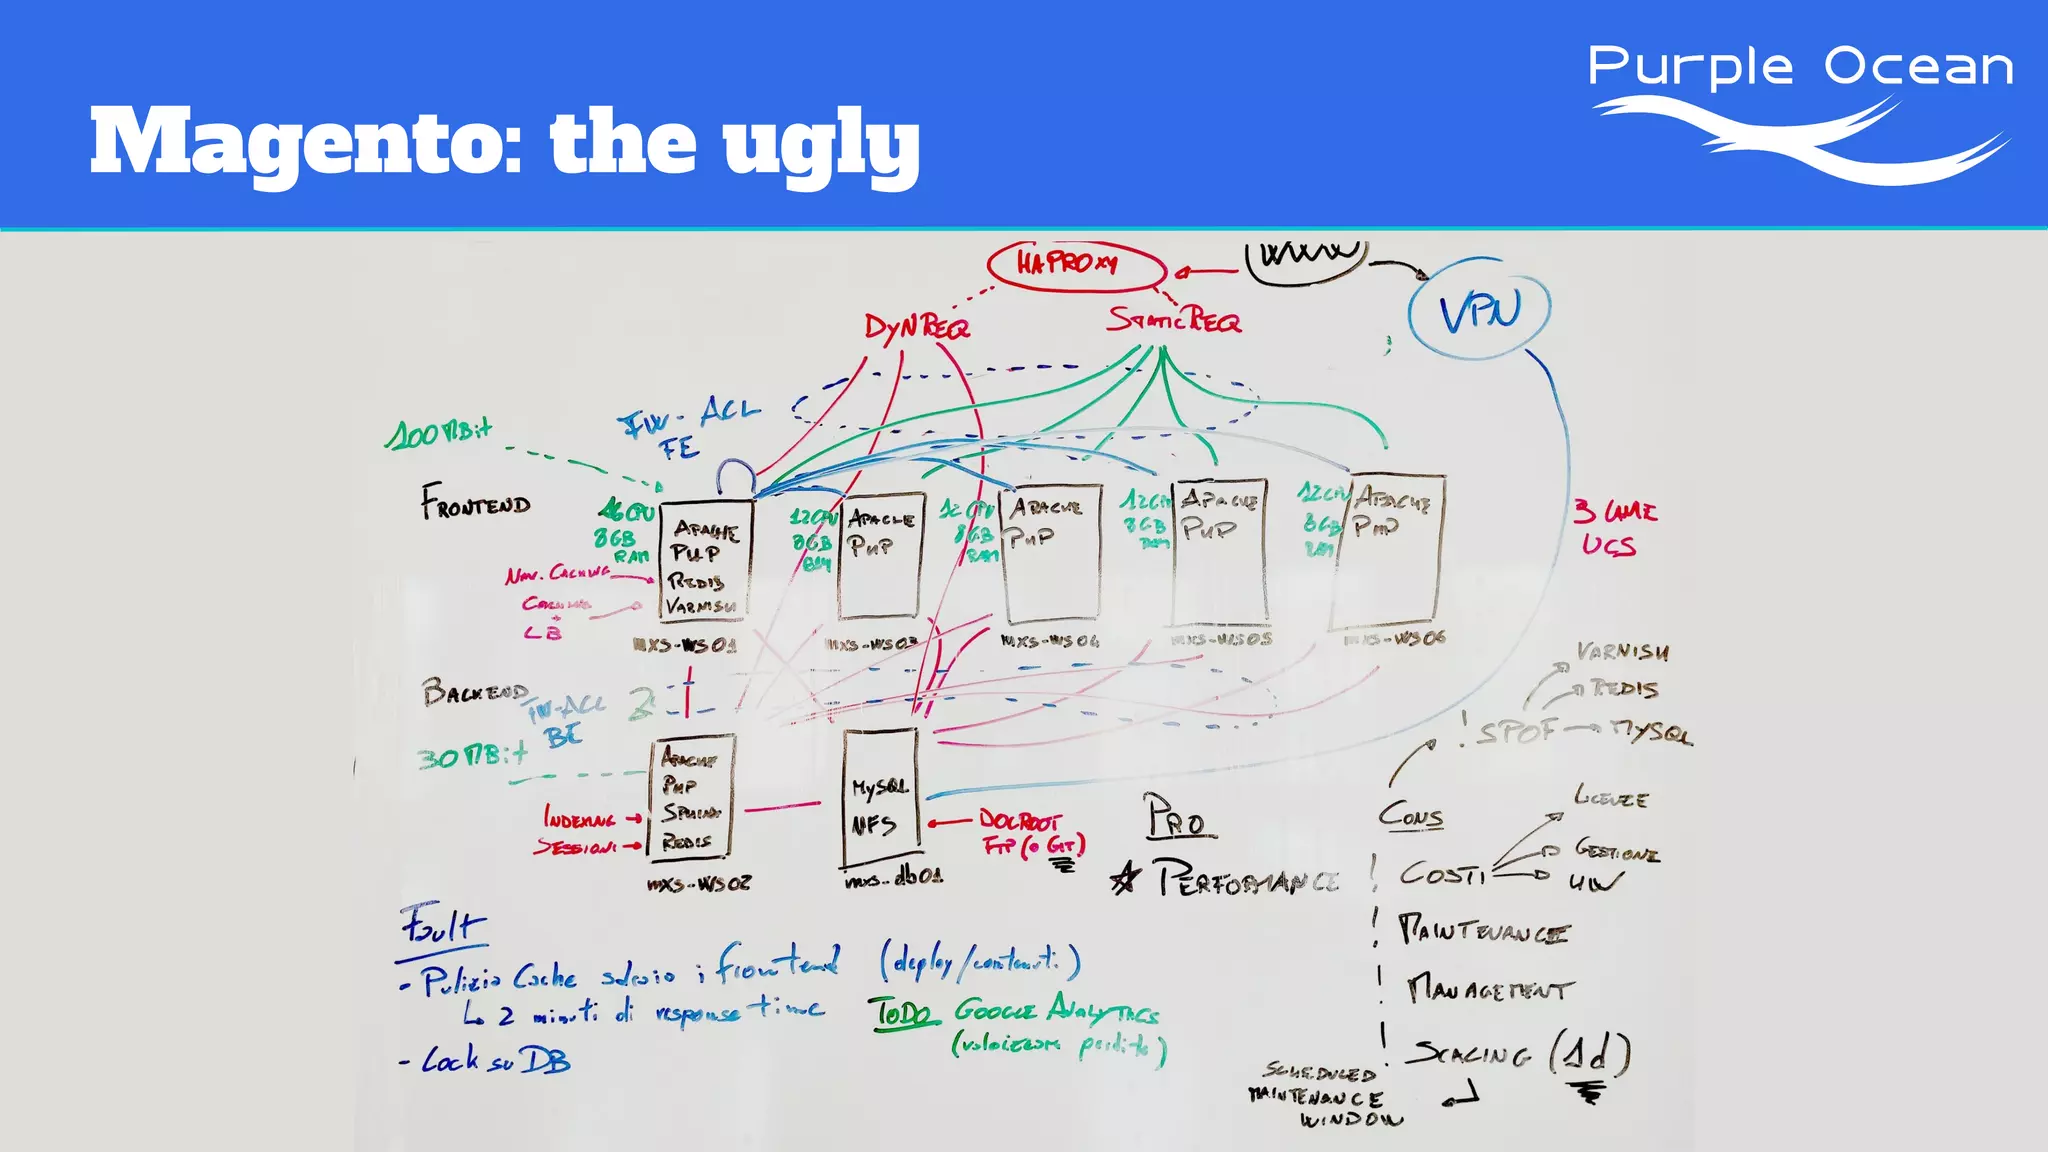 Purple Ocean
Magento: the ugly
WWW
HAPROXY
VPN
DYNREQ
STATICREQ
100MBit
FW-ACL
FE
FRONTEND
16CPU
8GB
RAM
APACHE
PHP
REDIS
VARNISH
CACHING
+
LB
mxs-ws01
12CPU
8GB
RAM
APACHE
PHP
mxs-ws03
12CPU
8GB
RAM
APACHE
PHP
mxs-ws04
12CPU
8GB
RAM
APACHE
PHP
mxs-ws05
12CPU
8GB
RAM
APACHE
PHP
mxs-ws06
3 LAME
UCS
BACKEND
FW-ACL
BE
30MBit
APACHE
PHP
SPHINX
REDIS
INDEXING
SESSIONI
mxs-ws02
MySQL
NFS
mxs-db01
DOCROOT
FTP (o GIT)
PRO
PERFORMANCE
CONS
! SPOF
VARNISH
REDIS
MYSQL
! COSTI
LICENZE
GESTIONE
HW
! MAINTENANCE
! MANAGEMENT
! SCALING (1d)
SCHEDULED
MAINTENANCE
WINDOW
Fault
- Pulizia Cache satura i frontend (deploy/contenuti)
2 minuti di response time
- Lock su DB
TODO GOOGLE ANALYTICS
(valorizzare perdite)